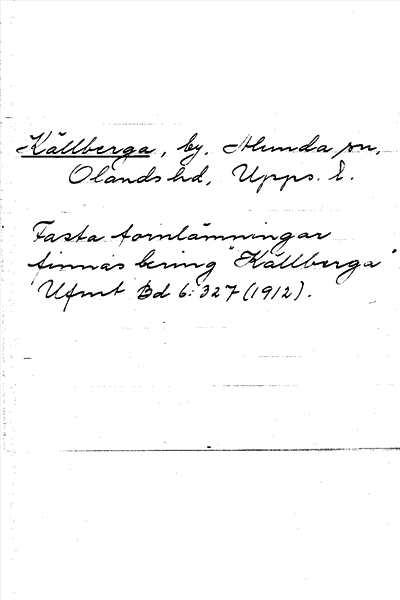 Källberga, by. Alunda sn,
Olands hd, Upps. l.
Fasta fornlämningar
finnas kring "Källberga"
Ufmt Bd 6: 327 (1912).